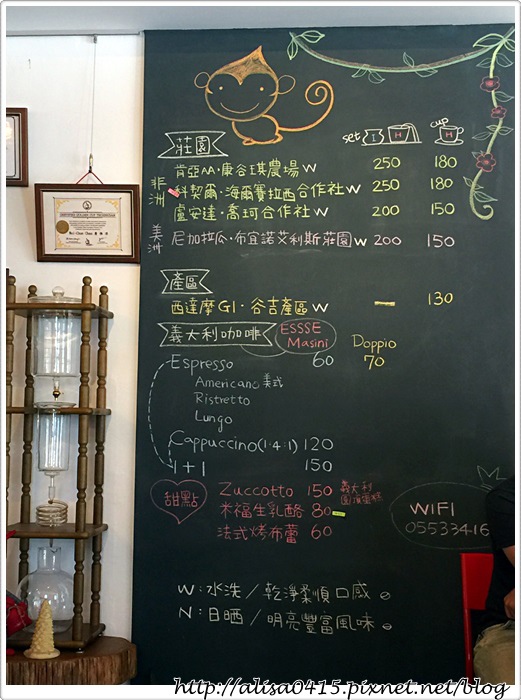 莊園 set I H cup H
非洲
肯亞AA·康谷琪農場 W 250 180
科契爾·海爾賽拉西合作社 W 250 180
盧安達·高珂合作社 W 200 150
美洲
尼加拉瓜·布宜諾艾利斯莊園 W 200 150
產區
西達摩G1·谷吉產區 W — 130
義大利咖啡 ESSSE Masini
Doppio
Espresso 60 70
Americano 美式
Ristretto
Lungo
Cappuccino(1:4:1) 120
1+1 150
甜點
Zuccotto 150 義大利圓頂蛋糕
米福生乳酪 80
法式烤布蕾 60
WIFI
05533416
W:水洗/乾淨柔順口感
N:日晒/明亮豐富風味
http://alisa0415.pixnet.net/blog